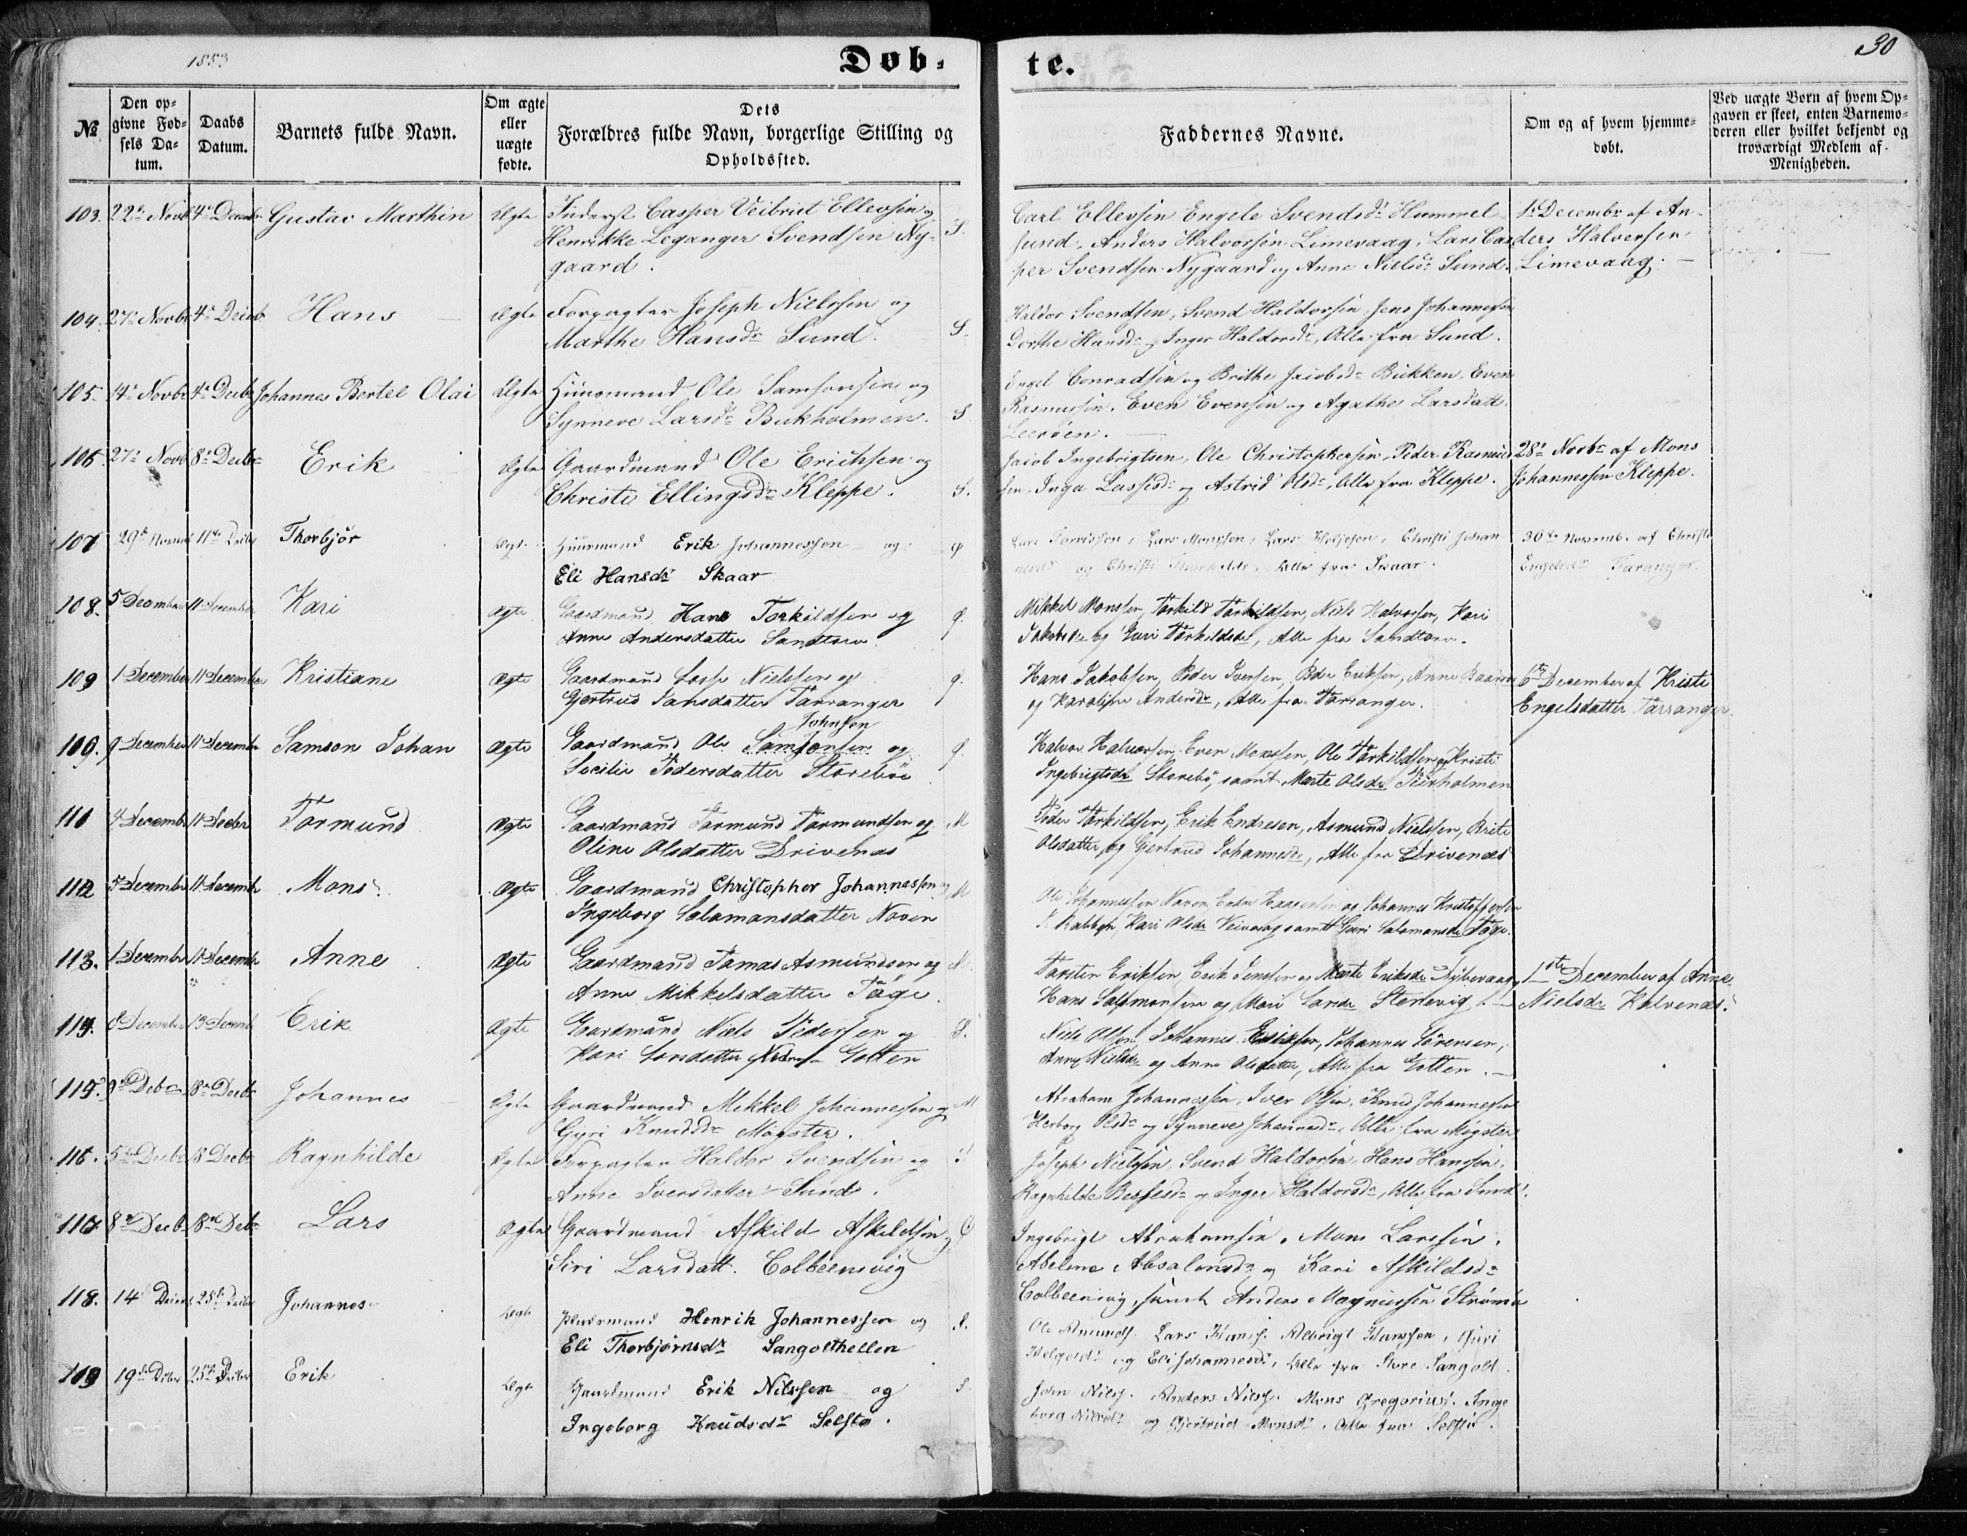 1853
Døb-
te.
30
№
Den op-
givne Fød-
sels Da-
tum.
Daabs
Datum.
Barnets fulde Navn.
Om ægte
eller
uægte
fødte.
Dets
Forældres fulde Navn, borgerlige Stilling og
Opholdssted.
Faddernes Navne.
Om og af hvem hjemme-
døbt.
Ved uægte Børn af hvem Op-
gaven er skeet, enten Barnemo-
deren eller hvilket bekjendt og
troværdigt Medlem af
Menigheden.
103. 22de Novb 4de Decembr Gustav Marthin Ægte Inderst Casper Veibrut Ellevsen og
Henrikke Leganger Svendsen Ny-
gaard.
S.
Carl Ellevsen Engele Svendsdr Hummel-
sund, Anders Halvorsen Limevaag, Lars Cas
per Svendsen Nygaard og Anne Nielsdr Sund.
1 Decembr af An-
ders Halversen
Limevaag.
104. 27de Novbr 4de Decbr Hans Ægte Forpagter Joseph Nielsen og
Marthe Hansdr Sund.
S.
Haldor Svendsen, Svend Haldorsen Jens Johannesen
Dorthe Hansdr og Inger Haldorsdr, Alle fra Sund.
105. 14de Novbr 4de Decbr Johannes Bertel Olai Ægte Huusmand Ole Samsonsen og
Synneve Larsdr Bukholmen.
S
Engel Conradsen og Brithe Jacobsdr Bukken. Even
Rasmusen. Even Evensen og Agathe Larsdatt.
Leerøen.
106. 27de Novb 8de Decbr Erik Ægte Gaardmand Ole Erichsen og
Christi Ellingsdr Kleppe.
S.
Jacob Ingebrigtsen, Ole Christophersen, Peder Rasmus
sen, Inga Lassesdr og Astrid Olsdr, Alle fra Kleppe.
28de Novbr af Mons
Johannessen Kleppe.
107 29de Novemb 11te Decbr Thorbjør Ægte Huusmand Erik Johannessen og
Eli Hansdr Skaar
Lars Monssen, Lars Christi Johan
nesdr og Christi Alle fra Skaar.
30te Novemb. af Christi
Engelsdr Taranger.
108. 5 December 11 December Kari Ægte Gaardmand Hans Torkildsen og
Anne Andersdatter Sandtorv.
Mikkel Monsen, Torkild Torkildsen, Niels Halvorsen, Kari
Jakobsdr og Guri Torkildsdr, Alle fra Sandtorv.
109 1 December 11 December Kristiane Ægte Gaardmand Nielsen og
Gjertrud Jansdatter Tarranger
Hans Jakobsen, Peder Iversen, Peder Eriksen, Anne
og Karoline Andersdr, Alle fra Tarranger.
6te December af Kristi
Engelsdatter Tarranger.
110. 9 December 11 Decembr Samson Johan Ægte Gaardmand Ole Samsonsen og
Johnsen
Secilie Pedersdatter Storebøe
Halvor Halvorsen, Even Monsen, Ole Torkildsen og Kristi
Ingebrigtsdr Storebø, samt Marte Olsdr
111 4 Decembr 11 Decbr Tormund Ægte Gaardmand Tormund Tormundsen og
Oline Olsdatter Drivenes
M
Peder Torkildsen, Erik Endresen, Asmund Nielsen, Brite
Olsdatter og Gjertrud Johannesdr, Alle fra Drivenes
112 5 December 11 Decembr Mons Ægte Gaardmand Christopher Johannessen og
Ingeborg Salamonsdatter Noven
M
Ole Johannessen Noven, og Johannes Kristoffersen
Kari Olsdr samt Guri Salomonsdr Tøge.
113. 1 December 11 December Anne Ægte Gaardmand Tomas Asmundsen og
Anne Mikkelsdatter Tøge.
M.
Torsten Eriksen, Erik Jensen og Marte Eriksdr
Hans Salomonsen og Mari Stenevig.
1ste December af Anne
Nielsdr Kalvenes.
114. 8 December 13 Decemb Erik Ægte Gaardmand Niels Pedersen og
Kari Larsdatter Nedre Golten
S.
Niels Olsen, Johannes Eriksen, Johannes Sørensen,
Anne Nielsdr og Anne Olsdatter, Alle fra Golten.
115. 9de Decbr 18de Decbr Johannes Ægte Gaardmand Mikkel Johannesen og
Guri Knudsdr Møgster.
M
Abraham Johannesen, Iver Olsen, Knud Johannesen
Herborg Olsdr og Synneve Johannesdr, Alle fra Møgster
116. 5te Decbr 18 Decbr Ragnhilde Ægte Forpagter Haldor Svendsen og
Anne Iversdatter Sund.
Joseph Nielsen, Svend Haldorsen, Hans Hansen,
Ragnhilde og Inger Haldorsdr, Alle fra Sund.
117 8de Decb 18de Decbr Lars Ægte Gaardmand Askild Askildsen og
Siri Larsdatt. Colbeensvig
Ingebrigt Abrahamsen, Mons Larsen,
Abelone Absalonsdr og Kari Askildsdr
Colbeensvig, samt Anders Magnussen Strømø
118. 14de Decemb 25de Decbr Johannes Ægte Huusmand Henrik Johannessen og
Eli Thorbjørnsdr Sangolthellen
S.
Ole Amunds. Lars Hans. Albrigt Hanssen, Guri
og Eli Johannesdr, Alle fra Store Sangolt.
119 19de Decbr 25de Decbr Erik Ægte Gaardmand Erik Nilssen og
Ingeborg Knudsdr Selstø.
S.
John Nilss. Anders Nilss. Mons Gregorius. Inge
borg Nilsdr og Gjertrud Monsdr. Alle fra Selstø.